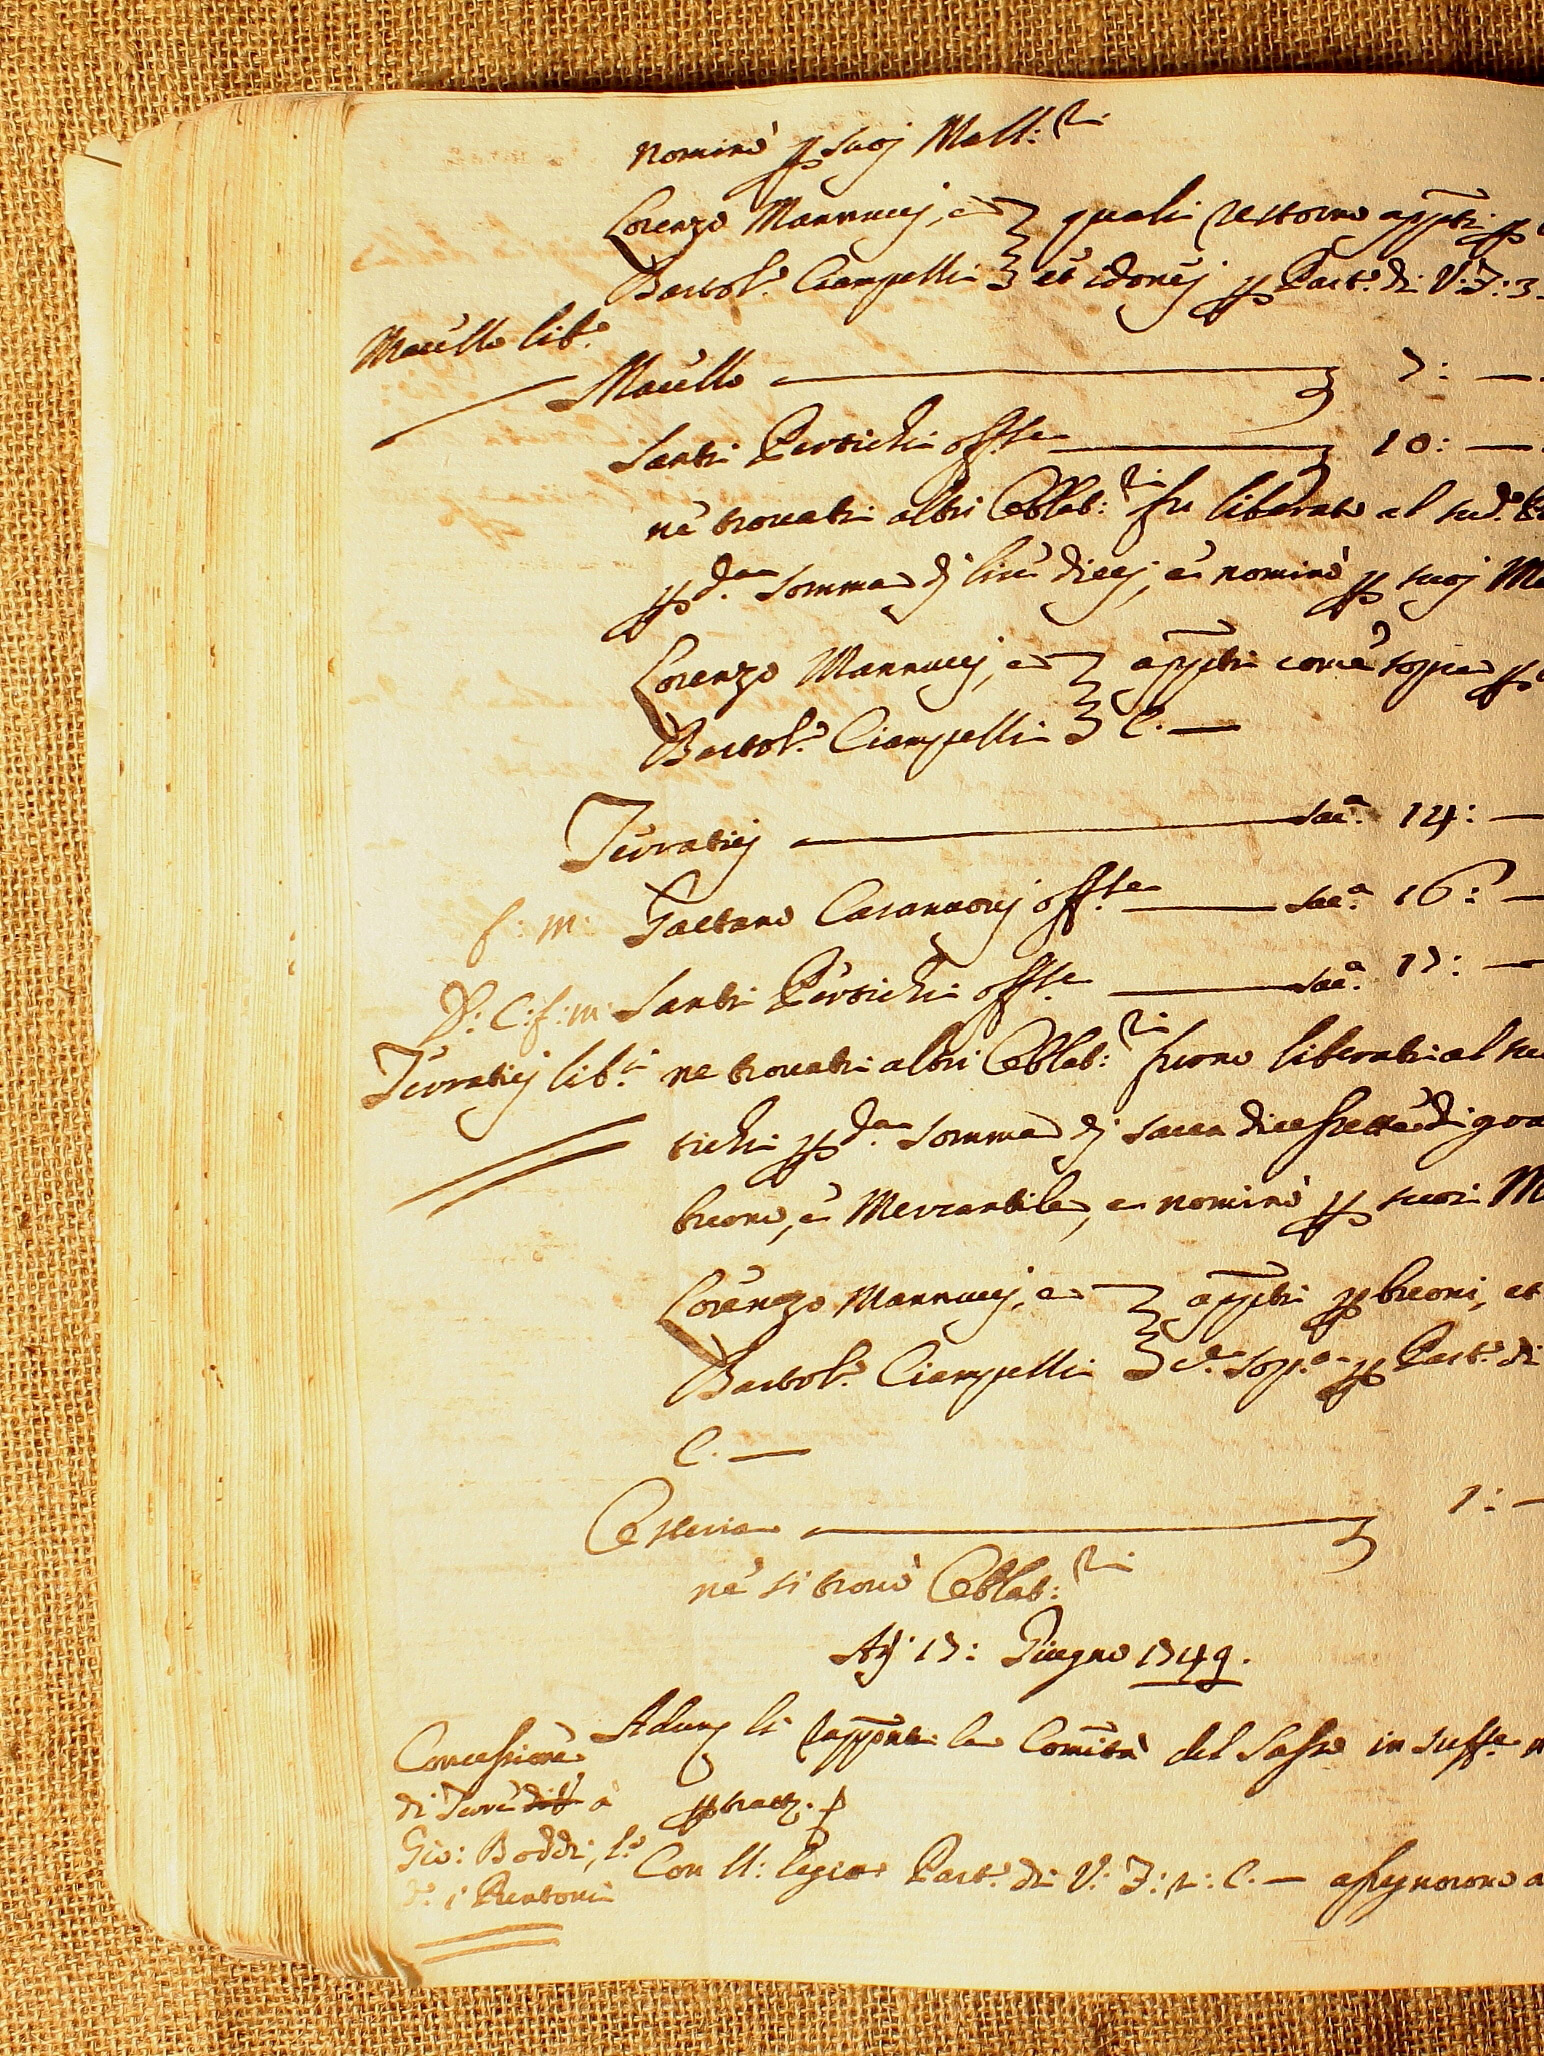 nominò p suoj Mall:ri
Lorenzo Mannucj, e quali restorno app̃ti p
Bartol:o Ciampelli et idonej p Part:o di V: F: 3
Macello lib:o
Macello 7: —
Santi Pertichi off:se 10: —
nè trouati altri Obblat:ri fu liberato al sud:o
p d:a somma dj lire diecj, e nominò p suoj
Lorenzo Mannucj, e app̃ti come sopra p
Bartol:o Ciampelli C. —
Terraticj sac:a 14: —
f: m: Gaetano Casanuovj off:se sac:a 16: —
D: C: f: m: Santi Pertichi off:se sac:a 17: —
Terraticj lib:i ne trouati altri Obblat:ri furno liberati al
tichi p d:a somma dj sacca diciessette di
buono, e Mercantile, e nominò p suoi
Lorenzo Mannucj, e app̃ti p buoni, et
Bartol:o Ciampelli c:e sop:a p Part:o di
C. —
Osteria 1: —
nè si trouò Obblat:ri
Adj 17: Giugno 1749.
Concessione
di Terre a
Gio: Boddi,
Adunj li rapp̃nti la Comĩtà del Sasso in suff:e
p tratt:
Con ll: legit: Part:o di V: F: C. — assegnorono a